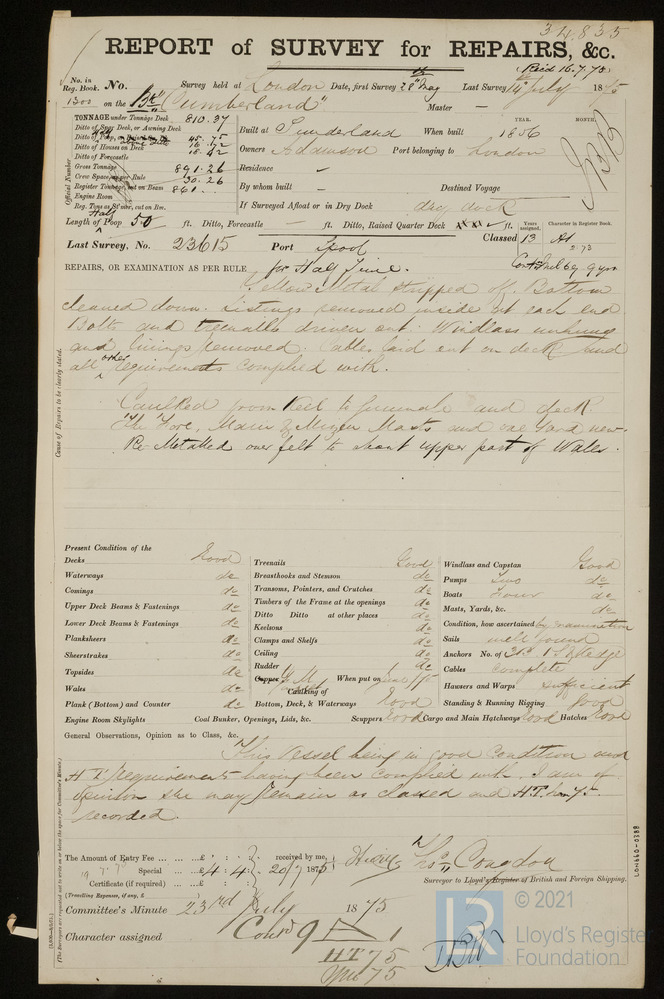 34835
REPORT of SURVEY for REPAIRS, &c.
(Recd 16.7.75)
No. in Reg. Book. No. Survey held at London Date, first Survey 28th May Last Survey 14th July 1875
1300 on the Bk "Cumberland" Master —
TONNAGE under Tonnage Deck 810.37
Ditto of Spar Deck, or Awning Deck
Ditto of Poop, 45.75
Ditto of Houses on Deck 16.72
Ditto of Forecastle 18.42
Gross Tonnage 891.26
Crew Space, as per Rule 30.26
Register Tonnage, cut on Beam 861.
Engine Room
Reg. Tons as St'mer, cut on Bm.
Official Number
Built at Sunderland When built YEAR. 1856 MONTH.
Owners Adamson Port belonging to London
Residence —
By whom built — Destined Voyage
If Surveyed Afloat or in Dry Dock dry dock
Length of Half Poop 50 ft. Ditto, Forecastle — ft. Ditto, Raised Quarter Deck ft. Years assigned. Character in Register Book.
Last Survey, No. 23615 Port Lpool Classed 13 A1
2.73
REPAIRS, OR EXAMINATION AS PER RULE for Half Time. Cont A1 Red 69 9 yrs
Yellow Metal stripped off. Bottom
cleaned down. Listings removed inside at each end
Bolts and treenails driven out. Windlass unhung
and linings removed. Cables laid out on deck and
all other requirements complied with.
Caulked from Keel to Gunwale and deck.
The Fore, Main & Mizen Masts and one Yard new.
Re-Metalled over felt to about upper part of Wales.
Cause of Repairs to be clearly stated.
Present Condition of the
Decks Good
Waterways do
Comings do
Upper Deck Beams & Fastenings do
Lower Deck Beams & Fastenings do
Planksheers do
Sheerstrakes do
Topsides do
Wales do
Plank (Bottom) and Counter do
Engine Room Skylights
Treenails Good
Breasthooks and Stemson do
Transoms, Pointers, and Crutches do
Timbers of the Frame at the openings do
Ditto Ditto at other places do
Keelsons do
Clamps and Shelfs do
Ceiling do
Rudder do
Copper Y M When put on June /75
Caulking of
Bottom, Deck, & Waterways Good
Coal Bunker, Openings, Lids, &c. Scuppers Good Cargo and Main Hatchways Good Hatches Good
Windlass and Capstan Good
Pumps Two do
Boats Four do
Masts, Yards, &c. do
Condition, how ascertained by examination
Sails well found
Anchors No. of 3 B. 1 S. 2 Kedge
Cables complete
Hawsers and Warps sufficient
Standing & Running Rigging Good
General Observations, Opinion as to Class, &c.
This Vessel being in good Condition and
H T. requirements having been complied with. I am of
Opinion she may remain as classed and HT. 75.
recorded.
The Amount of Entry Fee ... ... £ : : received by me,
Special ... £4 : 4 : 20/7 1875
Certificate (if required) ... £ : :
(Travelling Expenses, if any, £ )
Thos Congdon
Surveyor to Lloyd's Register of British and Foreign Shipping.
Committee's Minute 23rd July 1875
Character assigned Contd 9 A 1
HT 75
YM 75
LON640-0388
© 2021
LR
Lloyd's Register
Foundation